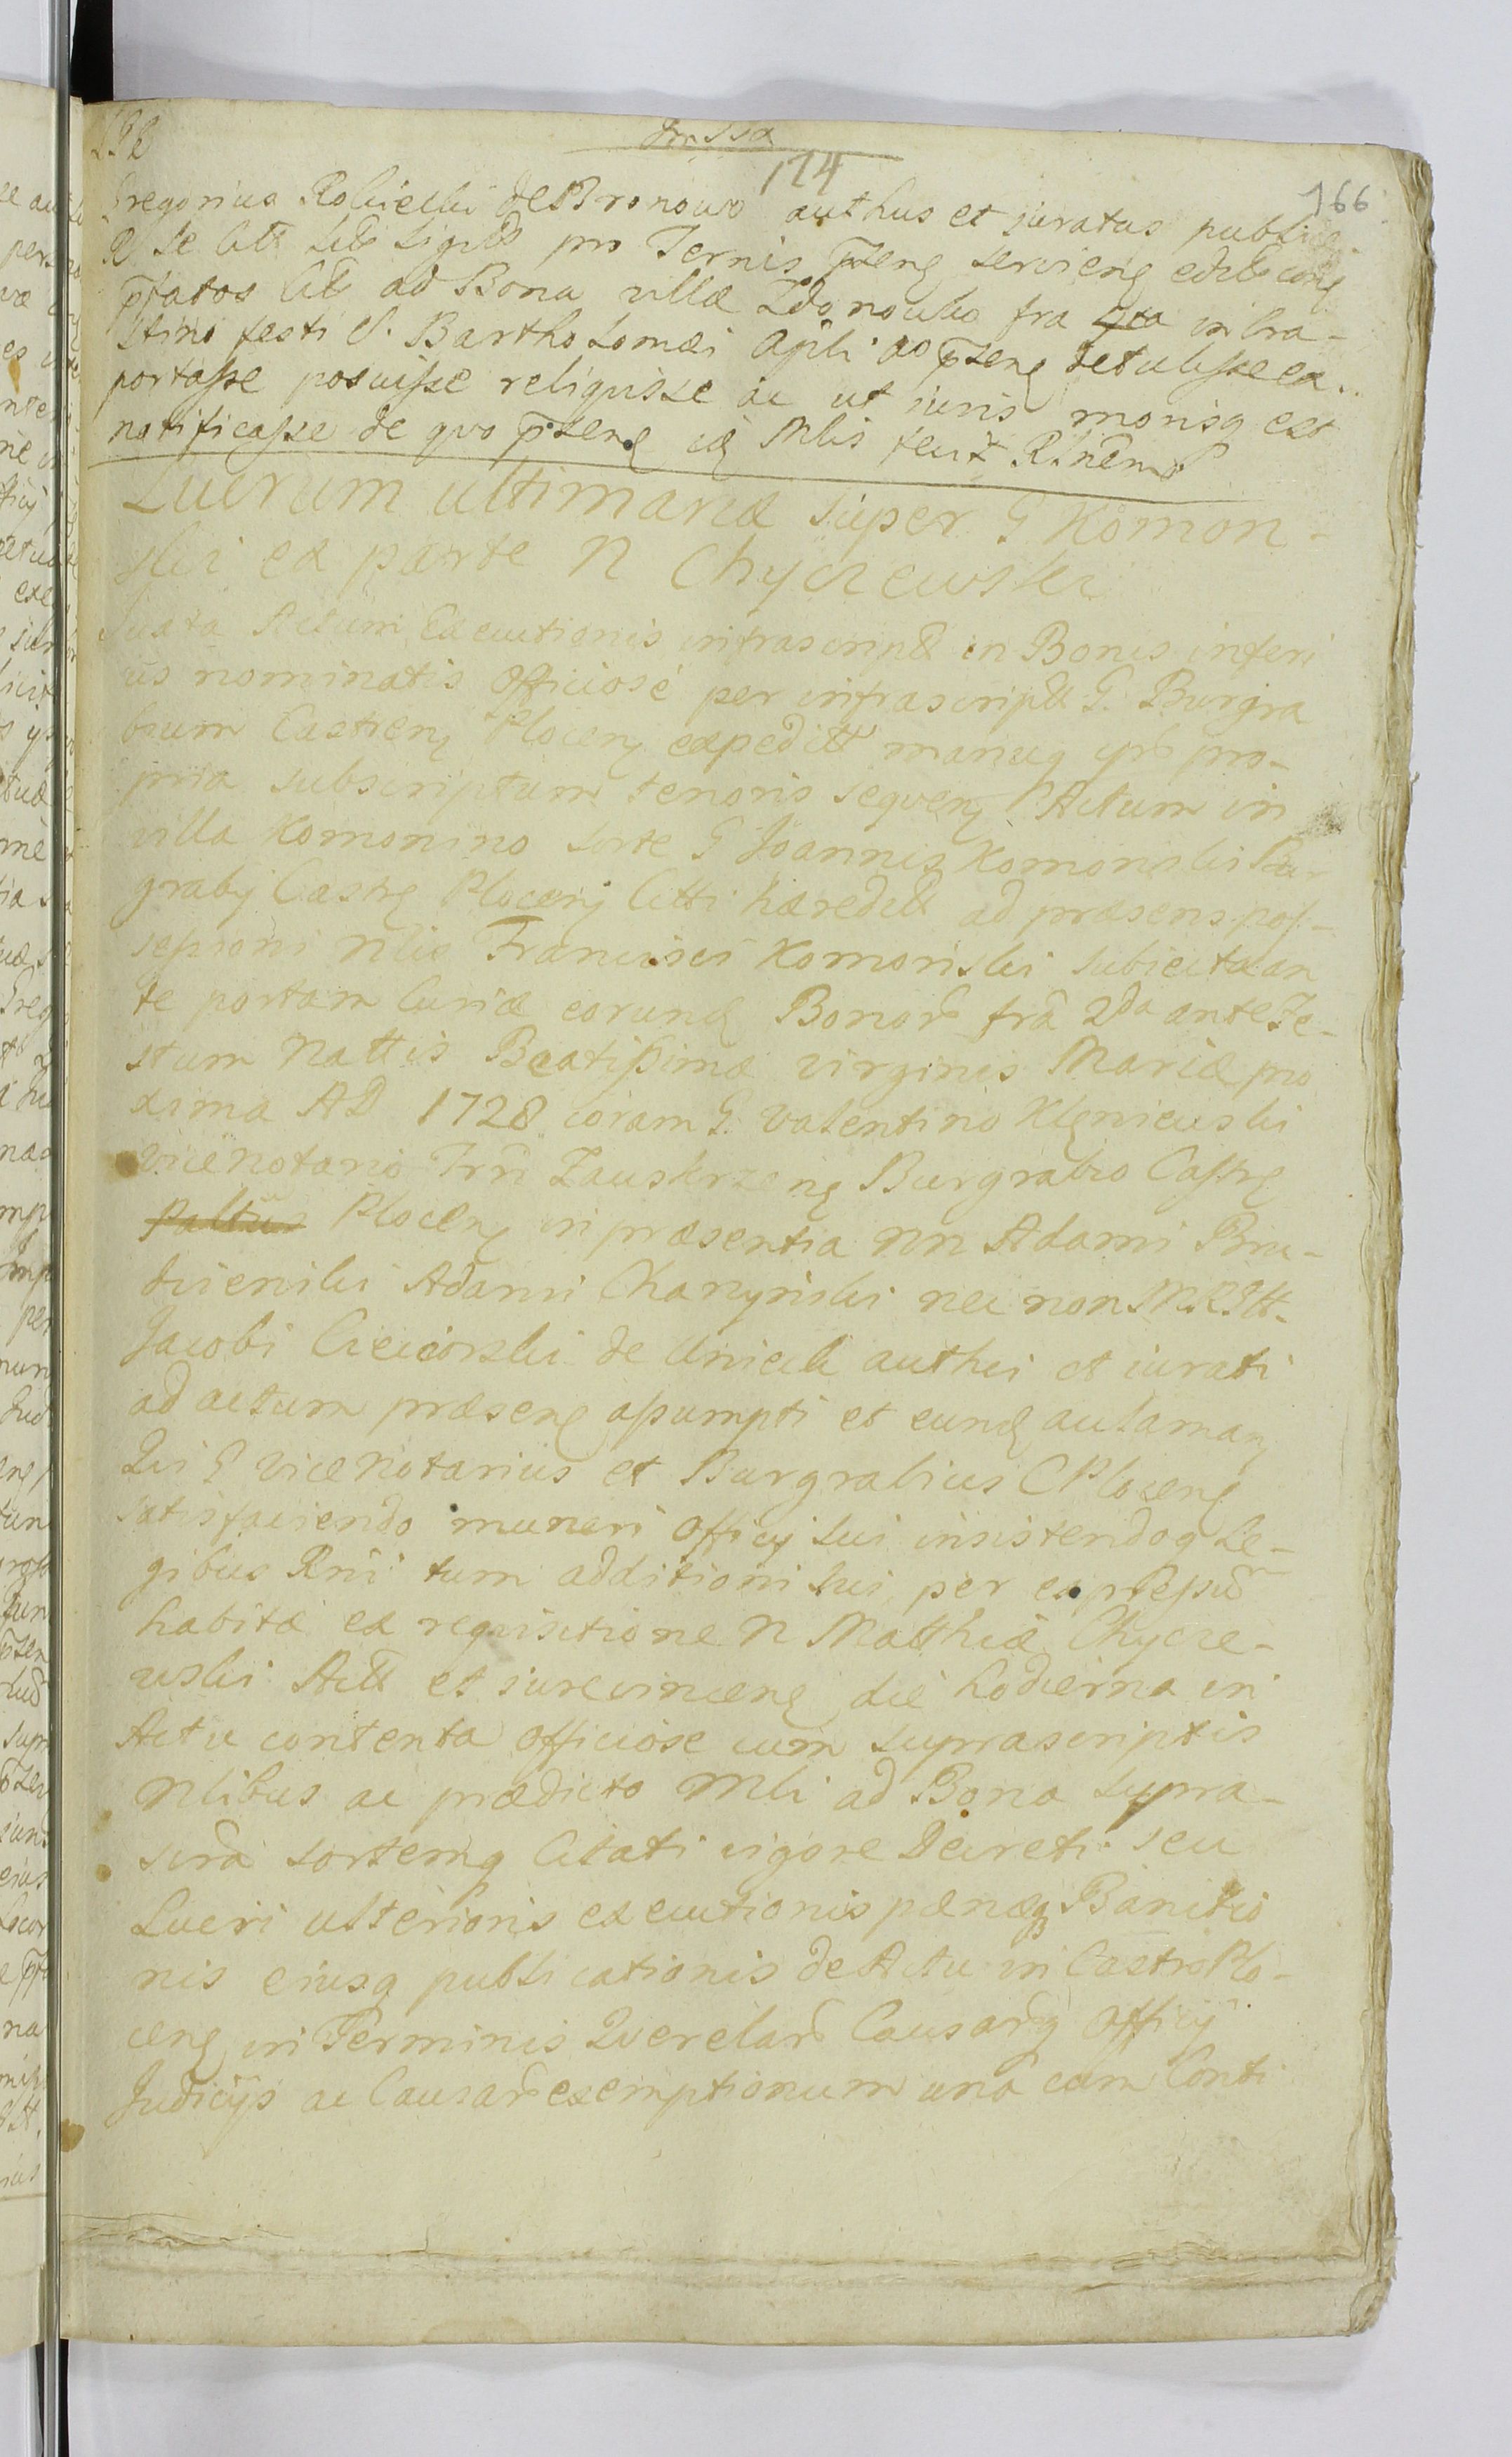 174
166
Gregorius Robiecki de Bronowo authus et iuratus public
R se litt sub sigill pro Ternis pnseng servieng edit cong
pfatos litt ad Bona villæ Zdonowko fra 4ta infra
stino festi S. Bartholomæi Apli ao pnseng detulisse ex
portasse posuisse reliquisse ac ut iuris morisq est
notificasse de quo pnseng idę Mlis fecit Rlnem
Lucrum ultimariæ super G Komon-
ski ex parte N Chyczewski
Juxta Actum Executionis infrascript in Bonis inferi
us nominatis Officiosé per infrascript G. Burgra
bium Castreng Ploceng expeditt manuq ips pro-
pria subscriptum tenoris sequeng Actum in
villa Komonino sorte G Joannis Komoriski Bur
grabij Castrę Ploceng Citti hæredit ad præsens pos-
sessioni Nlis Francisci Komoriski subiecta an
te portam Curiæ corundę Bonor frâ 2da ante Fe-
stum Nattis Beatissimæ virginis Mariæ pro
xima AD 1728 coram G. Valentino Klęniewski
vicenotario Trri Zauskrzeng Burgrabio Castrę
Ploceng in præsentia NN Adami Bru-
dzienski Adami Charzynski nec non M.R.Gtt.
Jacobi Cieciorski de Unieck authci et iurati
ad actum præseng assumpti et eundę aulaman
Qui G vicenotarius et Burgrabius C Ploceng
satisfaciendo muneri Officij sui insistendoq Le-
gibus Rnii tum additioni sui per exp
habitæ ex requisitione N Matthiæ Chycze-
wski Actt et iurevinceng die hodierna in
Actu contenta Officiose cum suprascriptis
Nlibus ac prædicto Mli ad Bona supra-
scrâ sortemq Citati vigore Decreti seu
Lucri ulterioris executionis pænæq Banitio
nis eiusq publicationis de Actu in Castro Plo-
ceng in Terminis Querelar Causarq Officij
Judicijs ac Causar exemptionum una cum Conti